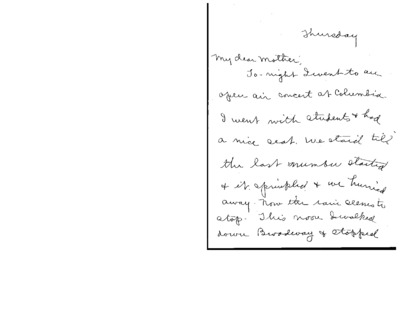 Thursday
My dear Mother,
To-night I went to an
open air concert at Columbia
I went with students & had
a nice seat. We staid till
the last number started
& it sprinkled & we hurried
away. Now the rain seems to
stop. This noon I walked
down Broadway & stopped